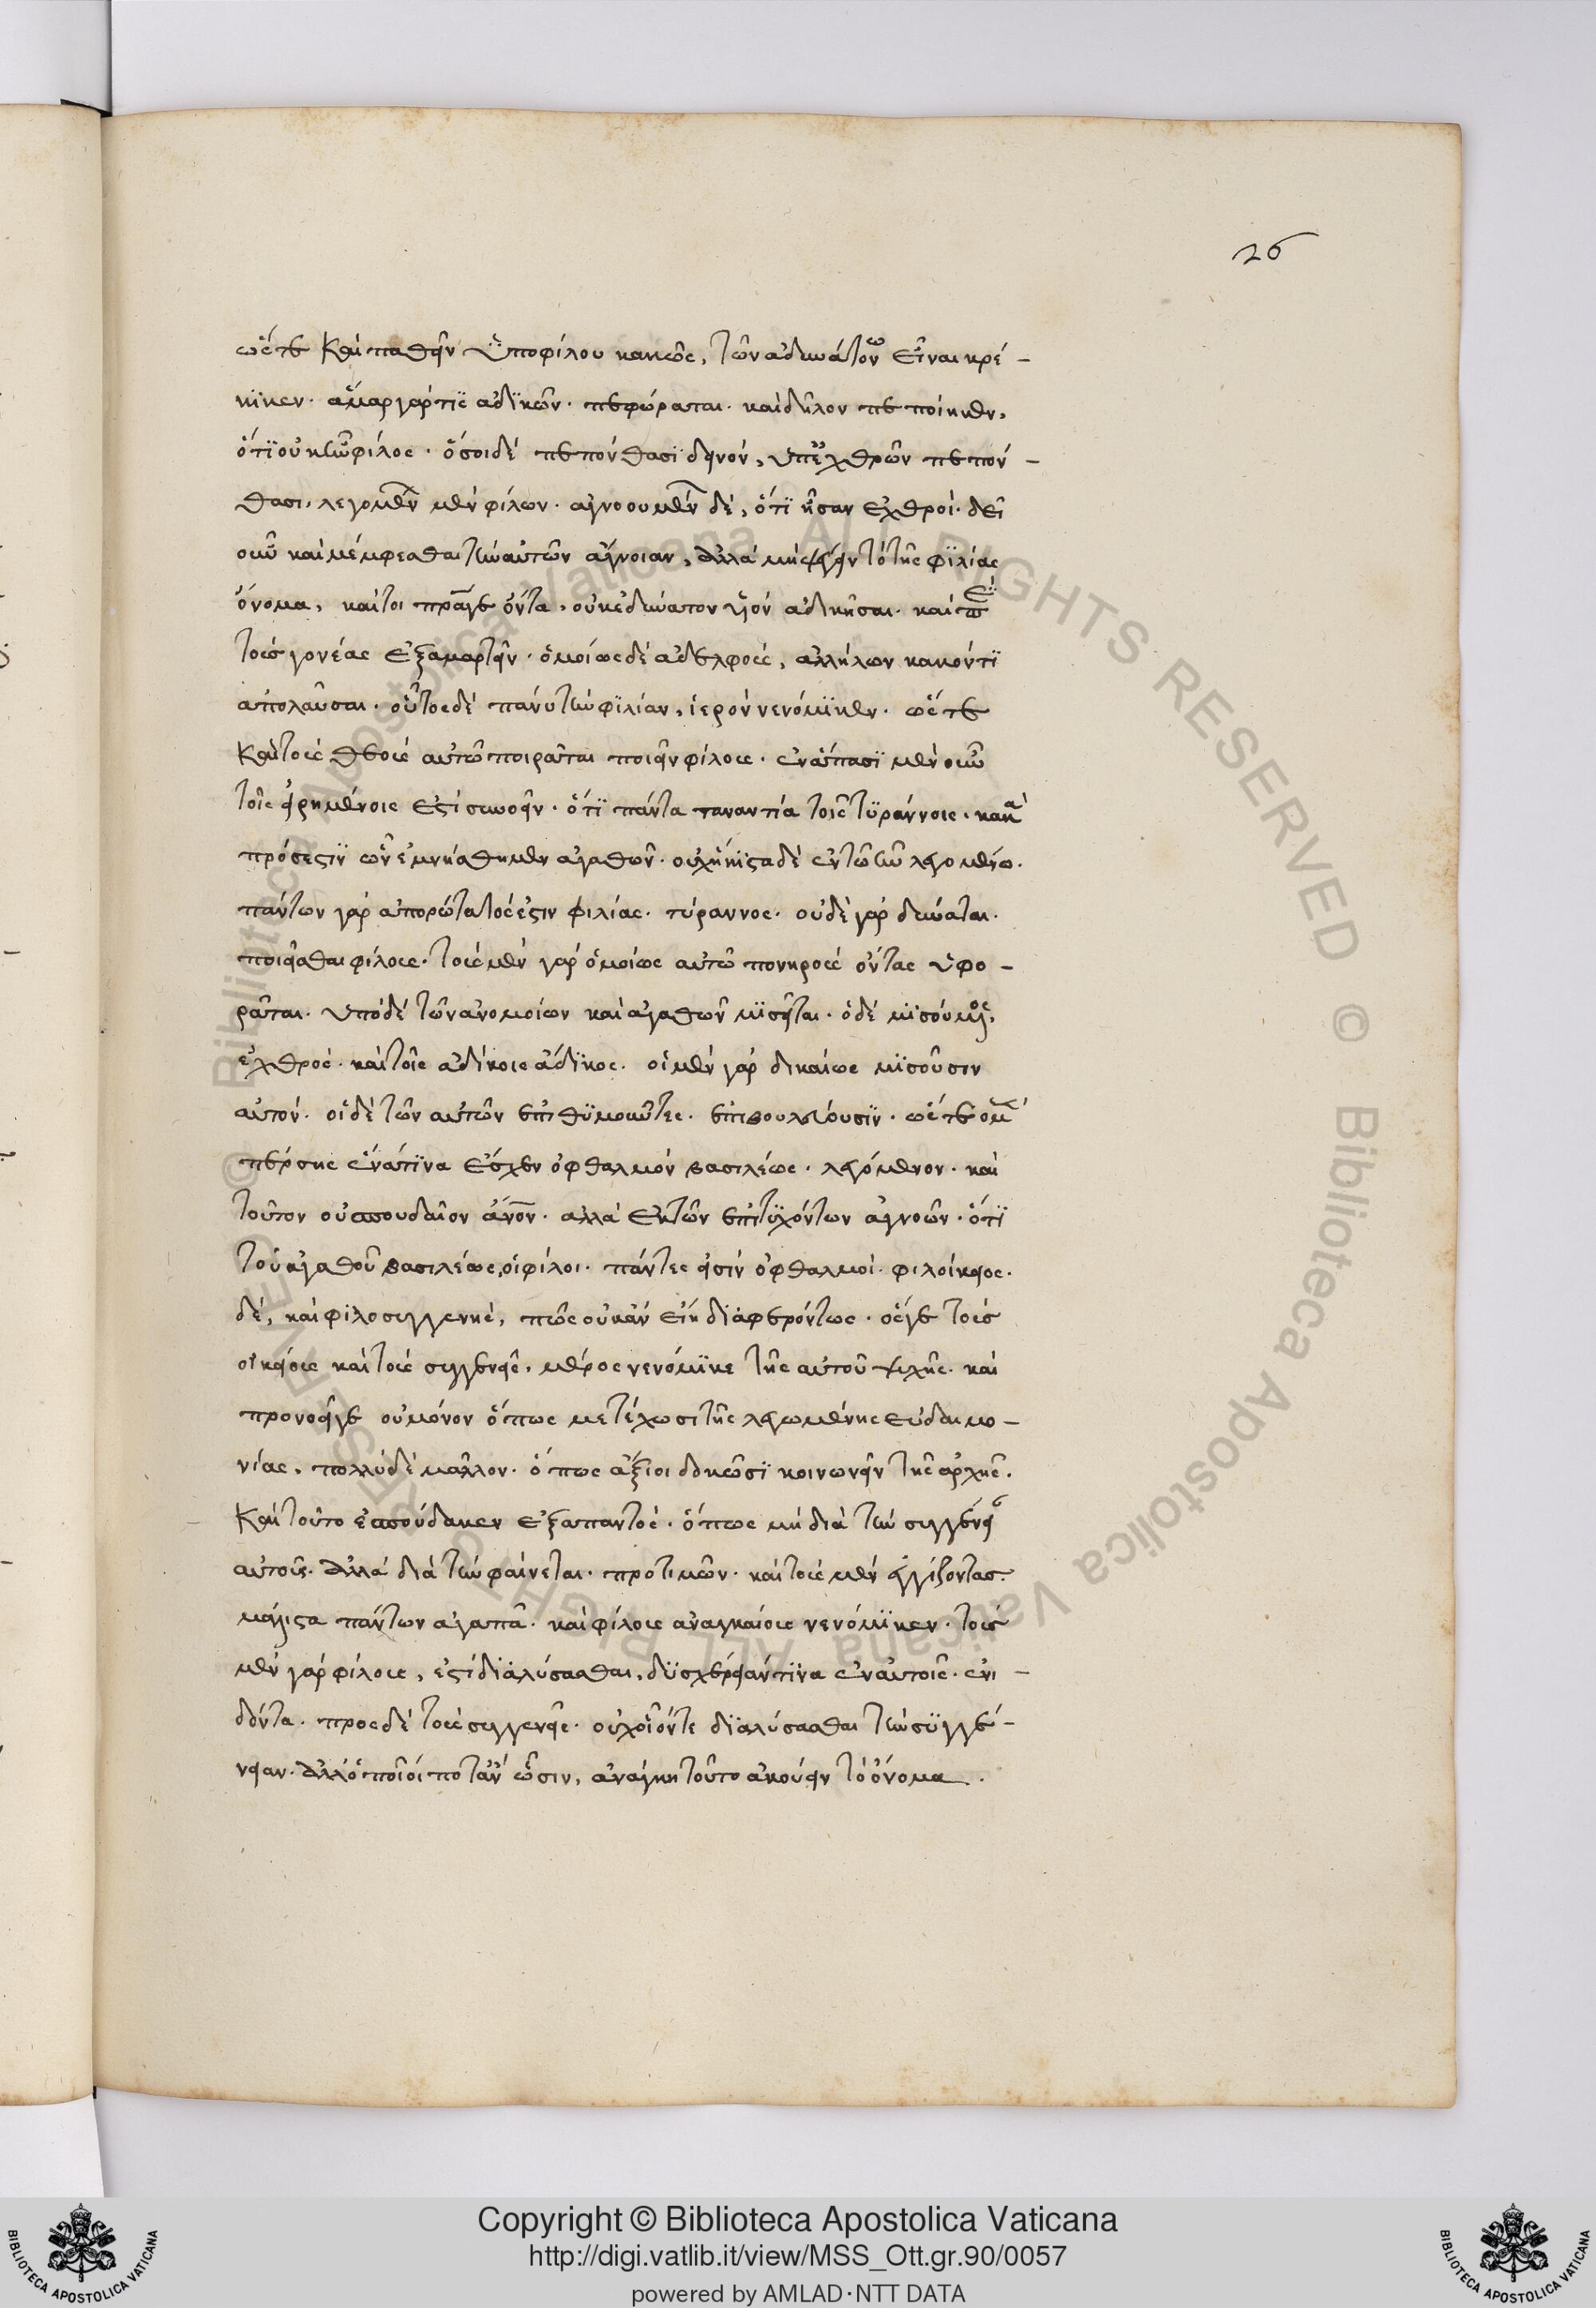 26
ὥστε καὶ παθεῖν ὑπο φίλου κακῶς, τῶν αδυνάτων εἶναι κρέ-
κϊκεν. ἁμαρ γαρ τις αδϊκῶν. πεφώραται. καὶ δῆλον πεποίηκεν,
ὅτϊ οὐκ ἦν φίλος. ὅσοι δέ πεπόνθασϊ δεινόν, υπ' ἐχθρῶν πεπόν-
θασι, λεγομένων μὲν φίλων. αγνοουμένων δὲ, ὅτϊ ἦσαν εχθροί. δεῖ
οὖν καὶ μέμφεσθαι τὴν αὐτῶν αγνοιαν, ἀλλὰ μὴ ψέγειν τὸ τῆς φϊλίας
ὄνομα, καίτοι πράγε ὄντα, οὐκ εδύνατον υἱόν αδικῆσαι. καὶ περὶ
τοὺς γονέας εξαμαρτεῖν. ὁμοίως δὲ αδελφοὺς, αλλήλων κακόντϊ
απολαῦσαι. οὗτος δὲ πάνυ τὴν φϊλίαν, ἱερόν νενόμϊκεν. ὥστε
καὶ τοὺς θεοὺς αυτῶ ποιρᾶται ποιεῖν φίλους. ἐν ἅπασϊ μὲν οὖν
τοῖς εἰρημένοις εξέσϊν οεῖν. ὅτϊ πάντα ταναντία τοῖς τϋράννοις. κακὰ
πρόσεστϊν ὧν ἐμνήσθημεν αγαθῶν. οὐχ ἥκϊστα δὲ ἐν τῶ νῦν λεγομένω.
πάντων γαρ απορώτατος ἐστιν φιλίας. τύραννος. οὐδὲ γαρ δύναται.
ποιεῖσθαι φίλους. τοὺς μὲν γαρ ὁμοίως αυτῶ πονηροὺς ὄντας ὑφο-
ρᾶται. υπὸ δὲ τῶν ανομοίων καὶ αγαθῶν μϊσεῖται. ὁ δὲ μϊσούμενος,
ἐχθρὸς. καὶ τοῖς αδίκοις ἄδϊκος. οἱ μὲν γαρ δικαίως μϊσοῦσιν
αυτόν. οἱ δὲ τῶν αυτῶν επϊθϋμοῦντες. επιβουλεύουσϊν. ὥστε ὁ μὲν
πέρσης ἕνα τϊνα έσχεν ὀφθαλμόν βασιλέως. λεγόμενον. καὶ
τοῦτον οὐ σπουδαῖον ἄνον. αλλὰ εκ τῶν επϊτϋχόντων ἀγνοῶν. ὅτϊ
τοῦ αγαθοῦ βασιλέως, οἱ φίλοι. πάντες εἰσὶν ὀφθαλμοί. φιλοίκειος.
δὲ, καὶ φϊλοσυγγενὴς, πῶς οὐκ ἂν εἴη διαφερόντως. ὅς γε τοὺς
οἰκείους καὶ τοὺς συγγενεῖς, μέρος νενόμϊκε τῆς αυτοῦ ψυχῆς. καὶ
προνοεῖ γε οὐ μόνον ὅπως μετέχωσι τῆς λεγωμένης εὐδαιμο-
νίας, πολλὺ δὲ μᾶλλον. ὅπως ἄξιοι δοκῶσϊ κοινωνεῖν τῆς αρχῆς.
καὶ τοῦτο ἐσπούδακεν εξ απαντὸς. ὅπως μὴ διὰ τὴν συγγένειαν
αυτοὺς. ἀλλὰ διὰ τὴν φαίνεται. προτιμῶν. καὶ τοὺς μὲν ἐγγίζοντας
μάλϊστα πάντων αγαπᾶ. καὶ φίλους αναγκαίους νενόμϊκεν. τοὺς
μὲν γαρ φίλους, ἔστι διαλύσασθαι, δϋσχέρειαν τϊνα ἐν αυτοῖς. ἐνι-
δόντα. προς δὲ τοὺς συγγενεῖς. οὐχ οἷόντε διαλύσασθαι τὴν σϋγγέ-
νειαν. ἀλλ' ὁποῖοί ποτ' ἂν ὦσιν, ανάγκη τοῦτο ακούειν τὸ ὄνομα.
Copyright © Biblioteca Apostolica Vaticana
http://digi.vatlib.it/view/MSS_Ott.gr.90/0057
powered by AMLAD·NTT DATA